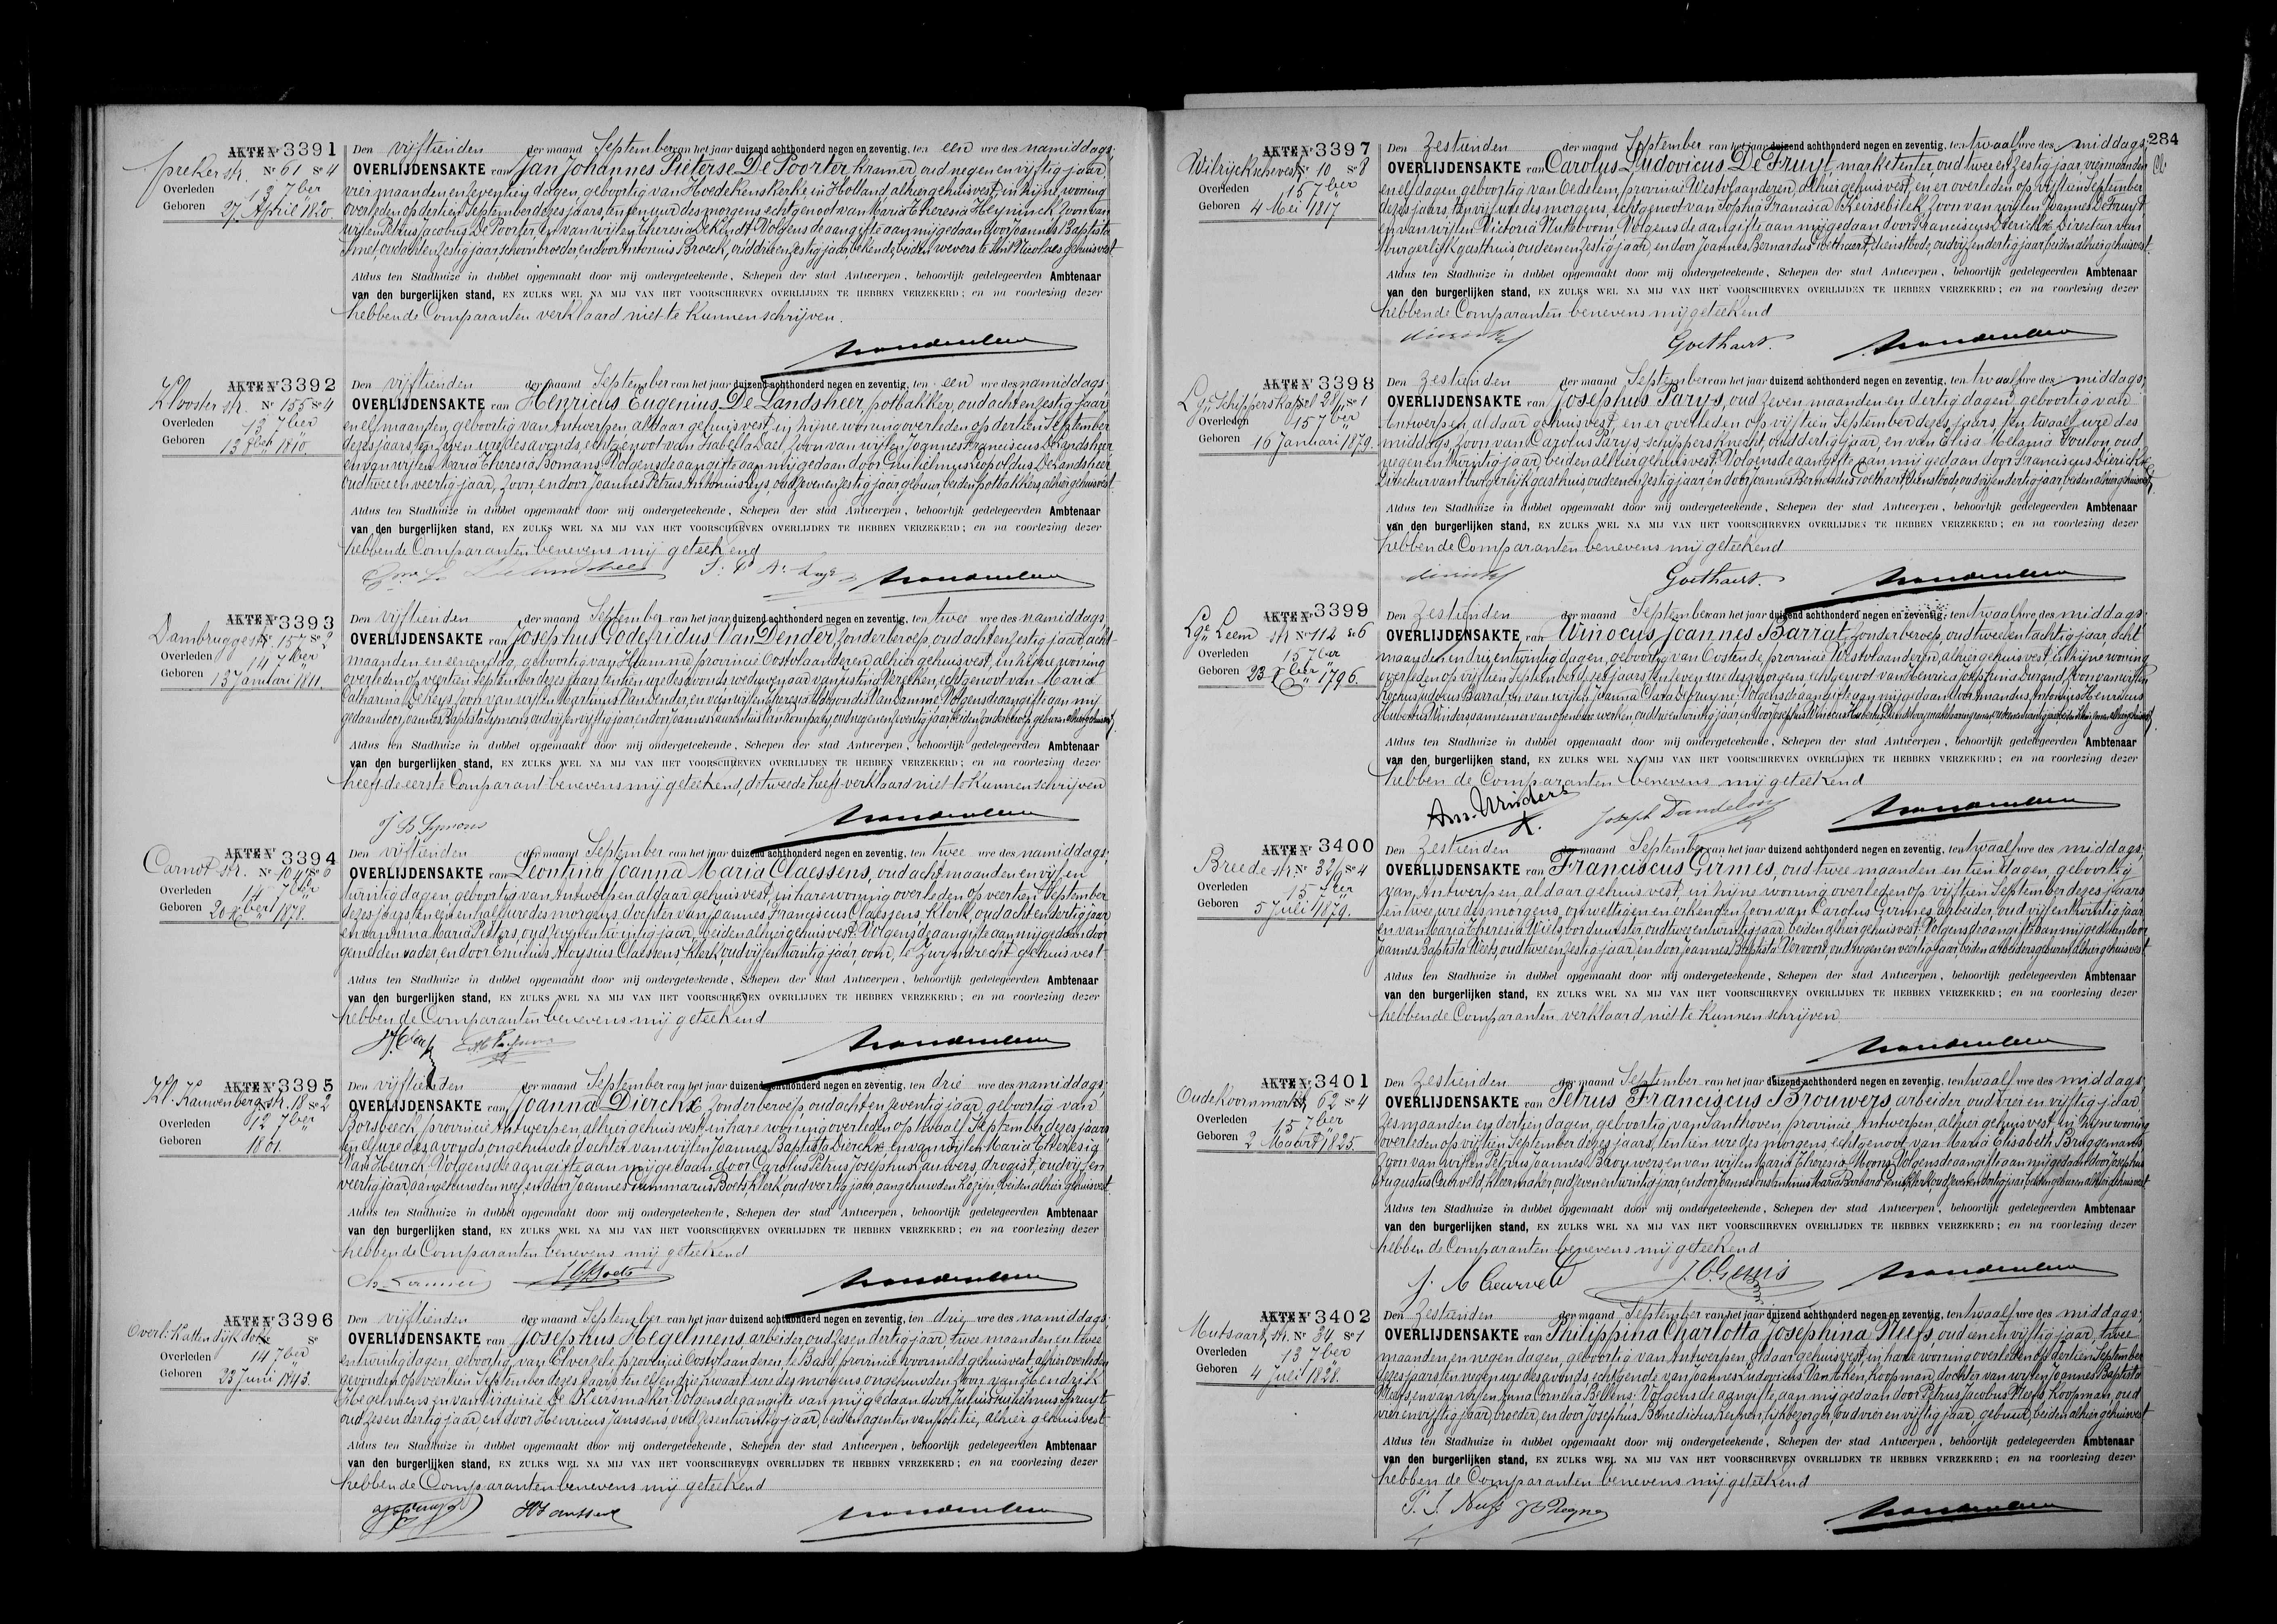 284
AKTE Nr 3391
Nr 61 Sn 4
Overleden 13 7ber
Geboren 27 April 1820
Den vijftienden der maand September van het jaar duizend achthonderd negen en zeventig, ten een ure des namiddags;
OVERLIJDENSAKTE van Jan Johannes Pieterse De Poorter, kramer, oud negen en vijftig jaar,
vier maanden en zeventien dagen, geboortig van Hoedekenskerke, in Holland, alhier gehuisvest, in zijne woning
overleden op dertien September dezes jaars, ten een uur des morgens, echtgenoot van Maria Theresia Heyninck, zoon van
wijlen Petrus Jacobus De Poorter en van wijlen Theresia Dekendt. Volgens de aangifte aan mij gedaan door Joannes Baptista
oud acht en zestig jaar, schoonbroeder, en door Antonius Broeck, oud drie en zestig jaar, bekende, beiden wevers te Sint Nicolaes gehuisvest
Aldus ten Stadhuize in dubbel opgemaakt door mij ondergeteekende, Schepen der stad Antwerpen, behoorlijk gedelegeerden Ambtenaar
van den burgerlijken stand, EN ZULKS WEL NA MIJ VAN HET VOORSCHREVEN OVERLIJDEN TE HEBBEN VERZEKERD; en na voorlezing dezer
hebben de Comparanten verklaard niet te kunnen schrijven.
AKTE Nr 3392
Klooster str. Nr 155 Sn 4
Overleden 13 7ber
Geboren 13 1810.
Den vijftienden der maand September van het jaar duizend achthonderd negen en zeventig, ten een ure des namiddags;
OVERLIJDENSAKTE van Henricus Eugenius De Landsheer, potbakker, oud acht en zestig jaar
en elf maanden, geboortig van Antwerpen, aldaar gehuisvest, in zijne woning overleden op dertien September
dezes jaars, ten zeven ure des avonds, echtgenoot van Isabella Dael, zoon van wijlen Joannes Franciscus De Landsheer
en van wijlen Maria Theresia Bomans. Volgens de aangifte aan mij gedaan door Guilielmus Leopoldus De Landsheer
oud twee en veertig jaar, zoon, en door Joannes Petrus Antonius Luys, oud zeven en zestig jaar, gebuur, beiden potbakkers, alhier gehuisvest
Aldus ten Stadhuize in dubbel opgemaakt door mij ondergeteekende, Schepen der stad Antwerpen, behoorlijk gedelegeerden Ambtenaar
van den burgerlijken stand, EN ZULKS WEL NA MIJ VAN HET VOORSCHREVEN OVERLIJDEN TE HEBBEN VERZEKERD; en na voorlezing dezer
hebben de Comparanten benevens mij geteekend
AKTE Nr 3393
Dambrugge str. Nr 157 Sn 2
Overleden 14 7ber
Geboren 13 Januari 1811.
Den vijftienden der maand September van het jaar duizend achthonderd negen en zeventig, ten twee ure des namiddags;
OVERLIJDENSAKTE van Josephus Godefridus Van Dender, zonder beroep, oud acht en zestig jaar, acht
maanden en eenen dag, geboortig van Hamme, provincie Oostvlaanderen, alhier gehuisvest, in zijne woning
overleden op veertien September dezes jaars, ten tien ure des avonds, weduwenaar van Justina Verelken, echtgenoot van Maria
Catharina De Keys, zoon van wijlen Martinus Van Dender, en van wijlen Theresia Aldegondis Van Damme. Volgens de aangifte aan mij
gedaan door Joannes Baptista Symons, oud vijf en vijftig jaar, en door Joannes Laurentius Van Rompaey, oud negen en zeventig jaar, beiden zonder beroep, geburen, alhier gehuisvest.
Aldus ten Stadhuize in dubbel opgemaakt door mij ondergeteekende, Schepen der stad Antwerpen, behoorlijk gedelegeerden Ambtenaar
van den burgerlijken stand, EN ZULKS WEL NA MIJ VAN HET VOORSCHREVEN OVERLIJDEN TE HEBBEN VERZEKERD; en na voorlezing dezer
heeft de eerste Comparant benevens mij geteekend, de tweede heeft verklaard niet te kunnen schrijven
J B Symons
AKTE Nr 3394
Carnot str. Nr 104 Sn 6
Overleden 14 7ber
Geboren 20 Xber 1878.
Den vijftienden der maand September van het jaar duizend achthonderd negen en zeventig, ten twee ure des namiddags;
OVERLIJDENSAKTE van Leontina Joanna Maria Claessens, oud acht maanden en vijf en
twintig dagen, geboortig van Antwerpen, aldaar gehuisvest, in hare woning overleden op veertien September
dezes jaars, ten een en half ure des morgens, dochter van Joannes Franciscus Claessens, klerk, oud acht en dertig jaar
en van Anna Maria Peeters, oud zeven en twintig jaar, beiden alhier gehuisvest. Volgens de aangifte aan mij gedaan door
gemelden vader, en door Emilius Aloysius Claessens, klerk, oud vijf en twintig jaar, oom, te Zwijndrecht gehuisvest
Aldus ten Stadhuize in dubbel opgemaakt door mij ondergeteekende, Schepen der stad Antwerpen, behoorlijk gedelegeerden Ambtenaar
van den burgerlijken stand, EN ZULKS WEL NA MIJ VAN HET VOORSCHREVEN OVERLIJDEN TE HEBBEN VERZEKERD; en na voorlezing dezer
hebben de Comparanten benevens mij geteekend
AKTE Nr 3395
Kl. Kauwenberg str. 18 Sn 2
Overleden 12 7ber
Geboren 1801.
Den vijftienden der maand September van het jaar duizend achthonderd negen en zeventig, ten drie ure des namiddags;
OVERLIJDENSAKTE van Joanna Dierckx, zonder beroep, oud acht en zeventig jaar, geboortig van
Borsbeeck, provincie Antwerpen, alhier gehuisvest, in hare woning overleden op twaalf September dezes jaars
ten elf ure des avonds, ongehuwde dochter van wijlen Joannes Baptista Dierckx en van wijlen Maria Theresia
Van Heurck. Volgens de aangifte aan mij gedaan door Carolus Petrus Josephus Lauwers, drogist, oud vijf en
veertig jaar, aangehuwden neef, en door Joannes Gummarus Boets, klerk, oud veertig jaar, aangehuwden kozijn, beiden alhier gehuisvest.
Aldus ten Stadhuize in dubbel opgemaakt door mij ondergeteekende, Schepen der stad Antwerpen, behoorlijk gedelegeerden Ambtenaar
van den burgerlijken stand, EN ZULKS WEL NA MIJ VAN HET VOORSCHREVEN OVERLIJDEN TE HEBBEN VERZEKERD; en na voorlezing dezer
hebben de Comparanten benevens mij geteekend
AKTE Nr 3396
Overl: Kattendijkdok Sn
Overleden 14 7ber
Geboren 23 Juni 1843.
Den vijftienden der maand September van het jaar duizend achthonderd negen en zeventig, ten drie ure des namiddags;
OVERLIJDENSAKTE van Josephus Hegelmens, arbeider, oud zes en dertig jaar, twee maanden en twee
en twintig dagen, geboortig van Elverzele, provincie Oostvlaanderen, te Basel, provincie voormeld gehuisvest, alhier overleden
gevonden op veertien September dezes jaars, ten elf en drie kwaart ure des morgens, ongehuwden zoon van Hendrik
Hegelmens en van Virginie De Kiersmaker. Volgens de aangifte aan mij gedaan door Julius Guilielmus Spruyt
oud zes en dertig jaar, en door Henricus Janssens, oud zes en twintig jaar, beiden agenten van politie, alhier gehuisvest
Aldus ten Stadhuize in dubbel opgemaakt door mij ondergeteekende, Schepen der stad Antwerpen, behoorlijk gedelegeerden Ambtenaar
van den burgerlijken stand, EN ZULKS WEL NA MIJ VAN HET VOORSCHREVEN OVERLIJDEN TE HEBBEN VERZEKERD; en na voorlezing dezer
hebben de Comparanten benevens mij geteekend
AKTE Nr 3397
Wilrijckschevest Nr 10 Sn 8
Overleden 15 7ber
Geboren 4 Mei 1817
Den Zestienden der maand September van het jaar duizend achthonderd negen en zeventig, ten twaalf ure des middags;
OVERLIJDENSAKTE van Carolus Ludovicus De Fruyt, marketenter, oud twee en zestig jaar, vier maanden
en elf dagen, geboortig van Oedelem, provincie Westvlaanderen, alhier gehuisvest, en er overleden op vijftien September
dezes jaars, ten vijf ure des morgens, echtgenoot van Sophia Francisca Keirsebilck, zoon van wijlen Joannes De Fruyt
en van wijlen Victoria Nuttebom. Volgens de aangifte aan mij gedaan door Franciscus Dierickx, Directeur van
't burgerlijk gasthuis, oud een en zestig jaar, en door Joannes Bernardus Goethaert, dienstbode, oud vijf en dertig jaar, beiden alhier gehuisvest.
Aldus ten Stadhuize in dubbel opgemaakt door mij ondergeteekende, Schepen der stad Antwerpen, behoorlijk gedelegeerden Ambtenaar
van den burgerlijken stand, EN ZULKS WEL NA MIJ VAN HET VOORSCHREVEN OVERLIJDEN TE HEBBEN VERZEKERD; en na voorlezing dezer
hebben de Comparanten benevens mij geteekend
Goethaert.
AKTE Nr 3398
Lge Schipperskapel 28/1 Sn 1
Overleden 15 7ber
Geboren 16 Januari 1879.
Den Zestienden der maand September van het jaar duizend achthonderd negen en zeventig, ten twaalf ure des middags;
OVERLIJDENSAKTE van Josephus Parys, oud zeven maanden en dertig dagen, geboortig van
Antwerpen, aldaar gehuisvest, en er overleden op vijftien September dezes jaars, ten twaalf ure des
middags, zoon van Carolus Parys, schippersknecht, oud dertig jaar, en van Elisa Melania Foulon, oud
negen en twintig jaar, beiden alhier gehuisvest. Volgens de aangifte aan mij gedaan door Franciscus Dierickx
Directeur van 't burgerlijk gasthuis, oud een en zestig jaar, en door Joannes Bernardus Goethaert, dienstbode, oud vijf en dertig jaar, beiden alhier gehuisvest.
Aldus ten Stadhuize in dubbel opgemaakt door mij ondergeteekende, Schepen der stad Antwerpen, behoorlijk gedelegeerden Ambtenaar
van den burgerlijken stand, EN ZULKS WEL NA MIJ VAN HET VOORSCHREVEN OVERLIJDEN TE HEBBEN VERZEKERD; en na voorlezing dezer
hebben de Comparanten benevens mij geteekend
Goethaert.
AKTE Nr 3399
Lge Leem str. Nr 114 Sn 6
Overleden 15 7ber
Geboren 23 Xber 1796.
Den Zestienden der maand September van het jaar duizend achthonderd negen en zeventig, ten twaalf ure des middags;
OVERLIJDENSAKTE van Arnocus Joannes Barrat, zonder beroep, oud twee en tachtig jaar, acht
maanden en drie en twintig dagen, geboortig van Oostende, provincie Westvlaanderen, alhier gehuisvest, in zijne woning
overleden op vijftien September dezes jaars, ten zeven ure des morgens, echtgenoot van Henrica Josephina Durand, zoon van wijlen
Rochus Judocus Barrat, en van wijlen Joanna Clara Defruyne. Volgens de aangifte aan mij gedaan door Armandus Antonius Henricus
Hubertus Winders, aannemer van openbare werken, oud twintig jaar, en door Josephus Vincentius Hubertus Dandeloy
Aldus ten Stadhuize in dubbel opgemaakt door mij ondergeteekende, Schepen der stad Antwerpen, behoorlijk gedelegeerden Ambtenaar
van den burgerlijken stand, EN ZULKS WEL NA MIJ VAN HET VOORSCHREVEN OVERLIJDEN TE HEBBEN VERZEKERD; en na voorlezing dezer
hebben de Comparanten benevens mij geteekend
Am. Winders Joseph Dandeloy
AKTE Nr 3400
Breede str. Nr 32/6 Sn 4
Overleden 15 7ber
Geboren 5 Juli 1879.
Den Zestienden der maand September van het jaar duizend achthonderd negen en zeventig, ten twaalf ure des middags;
OVERLIJDENSAKTE van Franciscus Girmes, oud twee maanden en tien dagen, geboortig
van Antwerpen, aldaar gehuisvest, in zijne woning overleden op vijftien September dezes jaars
ten twee ure des morgens, onwettigen en erkenden zoon van Carolus Girmes, arbeider, oud vijf en twintig jaar
en van Maria Theresia Wiels, borduurster, oud twee en twintig jaar, beiden alhier gehuisvest. Volgens de aangifte aan mij gedaan door
Joannes Baptista Weets, oud twee en zestig jaar, en door Joannes Baptista Vervoort, oud negen en veertig jaar, beiden arbeiders, geburen, alhier gehuisvest
Aldus ten Stadhuize in dubbel opgemaakt door mij ondergeteekende, Schepen der stad Antwerpen, behoorlijk gedelegeerden Ambtenaar
van den burgerlijken stand, EN ZULKS WEL NA MIJ VAN HET VOORSCHREVEN OVERLIJDEN TE HEBBEN VERZEKERD; en na voorlezing dezer
hebben de Comparanten verklaard niet te kunnen schrijven.
AKTE Nr 3401
Oude Koornmarkt, 62 Sn 4
Overleden 15 7ber
Geboren 2 Maart 1825.
Den Zestienden der maand September van het jaar duizend achthonderd negen en zeventig, ten twaalf ure des middags;
OVERLIJDENSAKTE van Petrus Franciscus Brouwers, arbeider, oud vier en vijftig jaar,
zes maanden en dertien dagen, geboortig van Santhoven, provincie Antwerpen, alhier gehuisvest, in zijne woning
overleden op vijftien September dezes jaars, ten tien ure des morgens, echtgenoot van Maria Elisabeth Bruggemans,
zoon van wijlen Petrus Joannes Brouwers en van wijlen Maria Theresia Moons. Volgens de aangifte aan mij gedaan door Josephus
Augustus Ceurveld, kleermaker, oud zeven en twintig jaar, en door Joannes Maria Barbara Genis, klerk, oud zeven en dertig jaar, beiden geburen alhier gehuisvest
Aldus ten Stadhuize in dubbel opgemaakt door mij ondergeteekende, Schepen der stad Antwerpen, behoorlijk gedelegeerden Ambtenaar
van den burgerlijken stand, EN ZULKS WEL NA MIJ VAN HET VOORSCHREVEN OVERLIJDEN TE HEBBEN VERZEKERD; en na voorlezing dezer
hebben de Comparanten benevens mij geteekend
J. A Ceurveld
AKTE Nr 3402
Mutsaart str. Nr 34 Sn 1
Overleden 13 7ber
Geboren 4 Juli 1828.
Den Zestienden der maand September van het jaar duizend achthonderd negen en zeventig, ten twaalf ure des middags;
OVERLIJDENSAKTE van Philippina Charlotta Josephina Neefs, oud een en vijftig jaar, twee
maanden en negen dagen, geboortig van Antwerpen, aldaar gehuisvest, in hare woning overleden op dertien September
dezes jaars, ten negen ure des avonds, echtgenote van Joannes Ludovicus Van Aken, koopman, dochter van wijlen Joannes Baptista
Neefs, en van wijlen Anna Cornelia Bellens. Volgens de aangifte aan mij gedaan door Petrus Jacobus Neefs, koopman, oud
vier en vijftig jaar, broeder, en door Josephus Benedictus Reynen, lijkbezorger, oud vier en vijftig jaar, gebuur, beiden alhier gehuisvest
Aldus ten Stadhuize in dubbel opgemaakt door mij ondergeteekende, Schepen der stad Antwerpen, behoorlijk gedelegeerden Ambtenaar
van den burgerlijken stand, EN ZULKS WEL NA MIJ VAN HET VOORSCHREVEN OVERLIJDEN TE HEBBEN VERZEKERD; en na voorlezing dezer
hebben de Comparanten benevens mij geteekend
P. J. Neefs